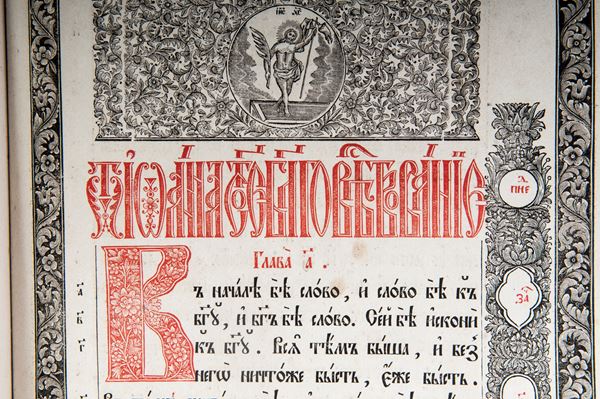 Ѿ ІѠА́ННА СТ҃О́Е БЛ҃ГОВѢСТВОВА́НІЕ
Глава̀ а҃ .
Въ нача́лѣ бѣ̀ сло́во , и҆ сло́во бѣ̀ къ
бг҃ꙋ , и҆ бг҃ъ бѣ̀ сло́во . Се́й бѣ̀ и҆сконѝ
къ бг҃ꙋ . Всѧ̑ тѣ́мъ бы́ша , и҆ без̾
негѡ̀ ничто́же бы́сть , є҆́же бы́сть .
а҃
в҃
г҃
л.
пне
за҃